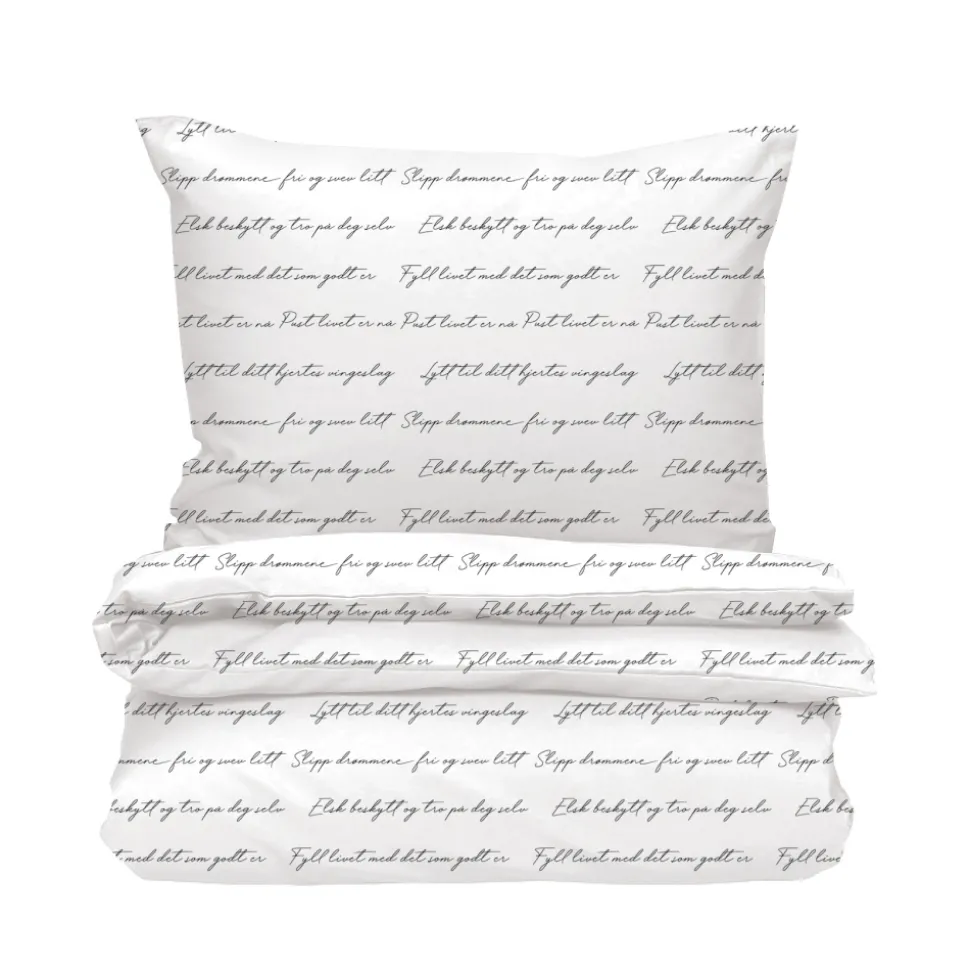 g Lytt
hjerte
Slipp drømmene fri og svev litt Slipp drømmene fri og svev litt Slipp drømmene fri
Elsk beskytt og tro på deg selv Elsk beskytt og tro på deg selv Elsk beskytt og
ll livet med det som godt er Fyll livet med det som godt er Fyll livet med d
t livet er nå Pust livet er nå Pust livet er nå Pust livet er nå Pust livet er nå
Lytt til ditt hjertes vingeslag Lytt til ditt hjertes vingeslag Lytt til ditt
drømmene fri og svev litt Slipp drømmene fri og svev litt Slipp drømmene
Elsk beskytt og tro på deg selv Elsk beskytt og tro på deg selv Elsk beskytt og
ll livet med det som godt er Fyll livet med det som godt er Fyll livet med de
og svev litt Slipp drømmene fri og svev litt Slipp drømmene fri og svev litt Slipp drømmene f
tro på deg selv Elsk beskytt og tro på deg selv Elsk beskytt og tro på deg selv Elsk beskytt og tr
t som godt er Fyll livet med det som godt er Fyll livet med det som godt er Fyll livet med det som g
ditt hjertes vingeslag Lytt til ditt hjertes vingeslag Lytt til ditt hjertes vingeslag Lytt t
mmene fri og svev litt Slipp drømmene fri og svev litt Slipp drømmene fri og svev litt Slipp d
eskytt og tro på deg selv Elsk beskytt og tro på deg selv Elsk beskytt og tro på deg selv Elsk bes
t med det som godt er Fyll livet med det som godt er Fyll livet med det som godt er Fyll live